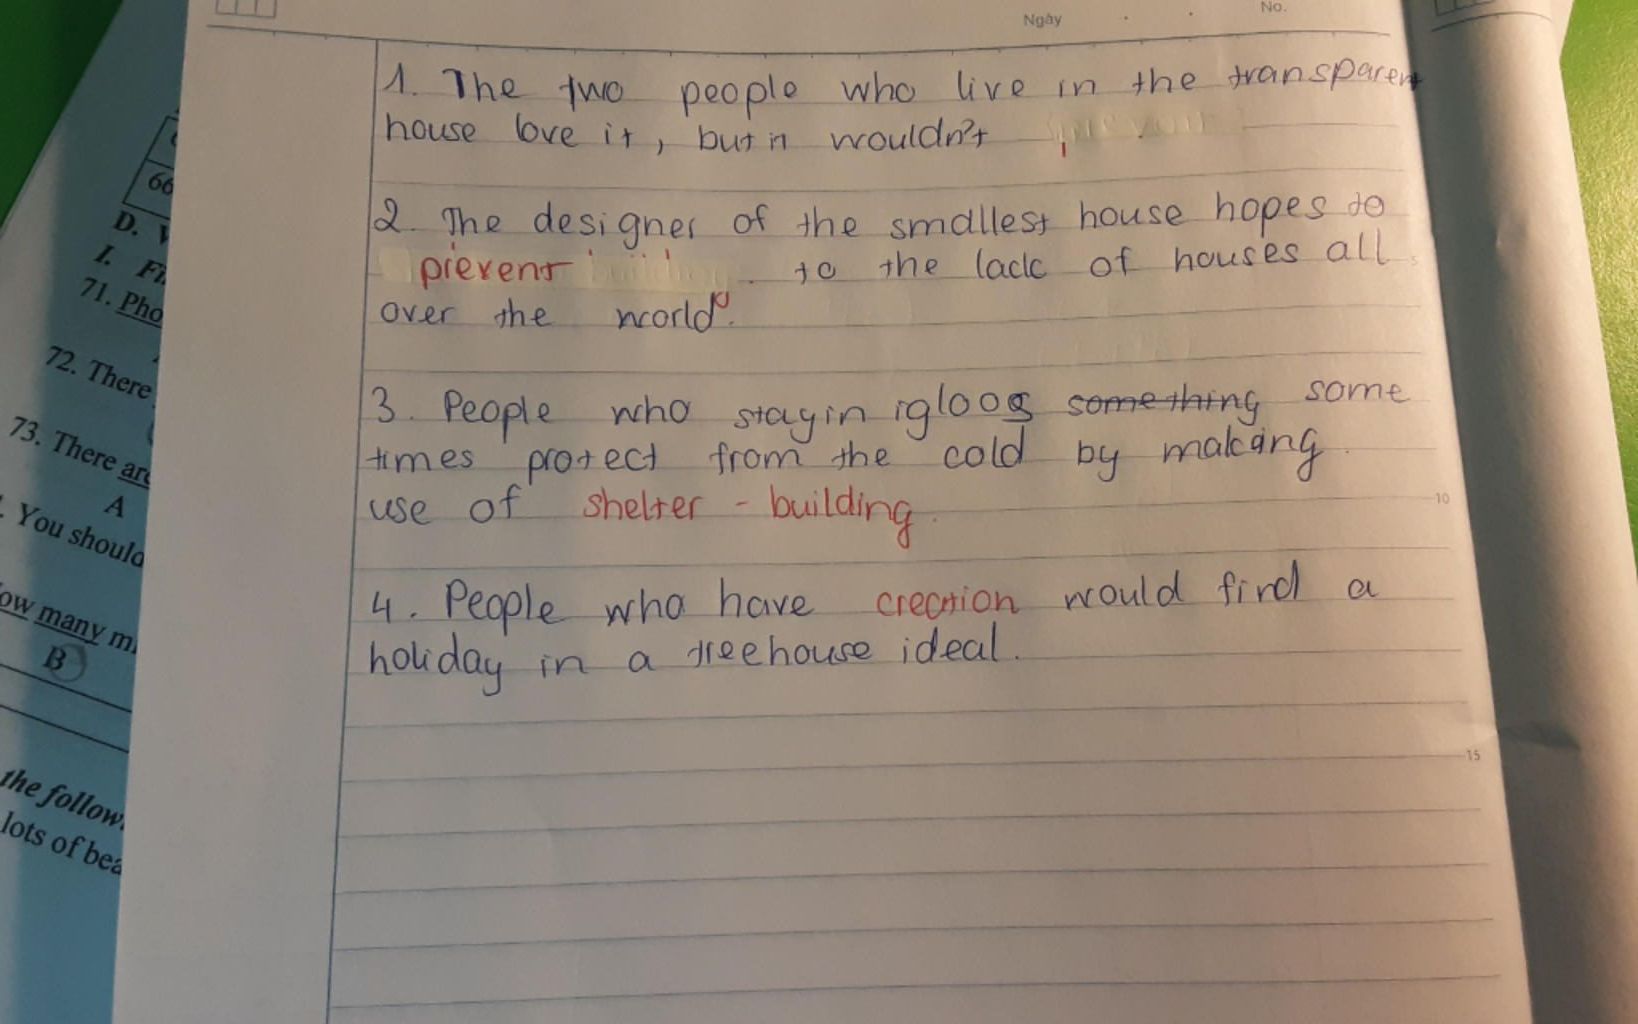 Ngày
No.
1. The two people who live in the transparent
house love it, but it wouldn't
2. The designer of the smallest house hopes to
prevent to the lack of houses all
over the world.
3. People who stay in igloos something some
times protect from the cold by making
use of shelter - building.
4. People who have creation would find a
holiday in a treehouse ideal.
10
15
66
D.
I.
71. Pho
72. There
73. There are
A
You should
ow many m
B
the follow
lots of bea